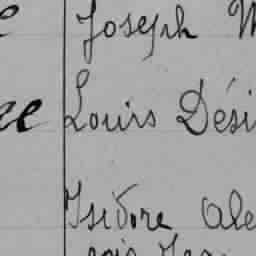 Joseph
Louis Dési
Isidore Ale